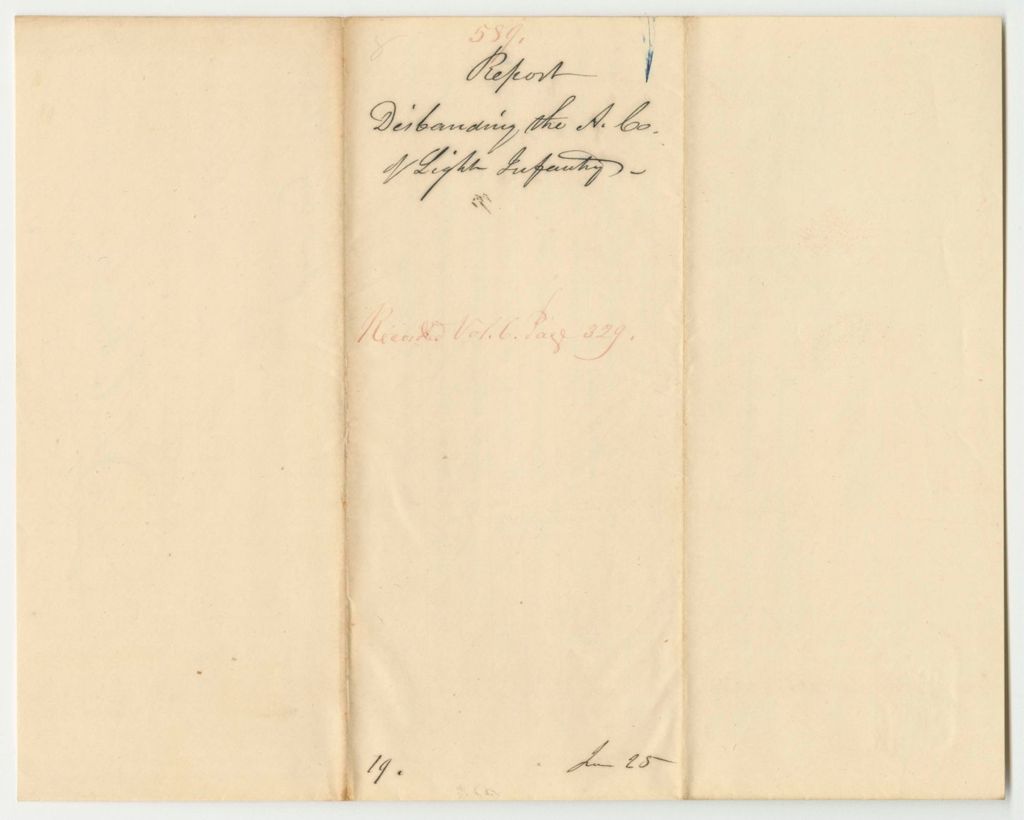 589.
Report
Disbanding the A. Co.
of Light Infantry -
Recorded Vol. 6. Page 329.
19.
Jun 25